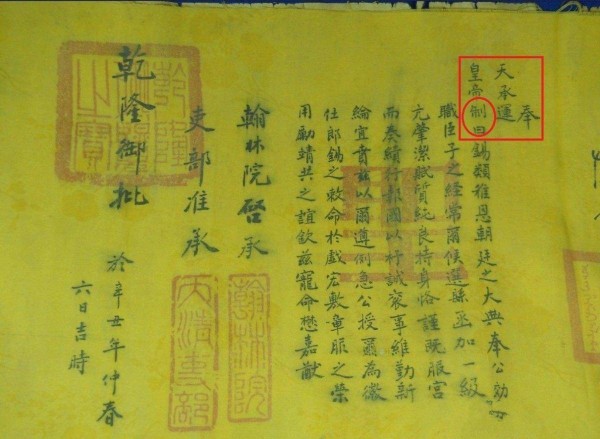 奉
天承運
皇帝制曰錫類雅恩朝廷之大典奉公効
職臣子之經常爾候選縣丞加一級
元肇潔賦質純良持身恪謹既服官
而奏績行報國以忱誠褒軍維勤新
綸宜賁茲以爾遵例急公授爾為徵
仕郎錫之敕命於戲宏敷章服之榮
用勵靖共之誼欽茲寵命懋嘉猷
翰林院啓承
翰林院
吏部准承
乾隆御批
於辛丑年仲春
六日吉時